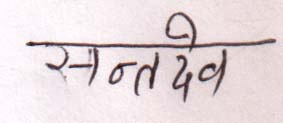 सन्तदेव